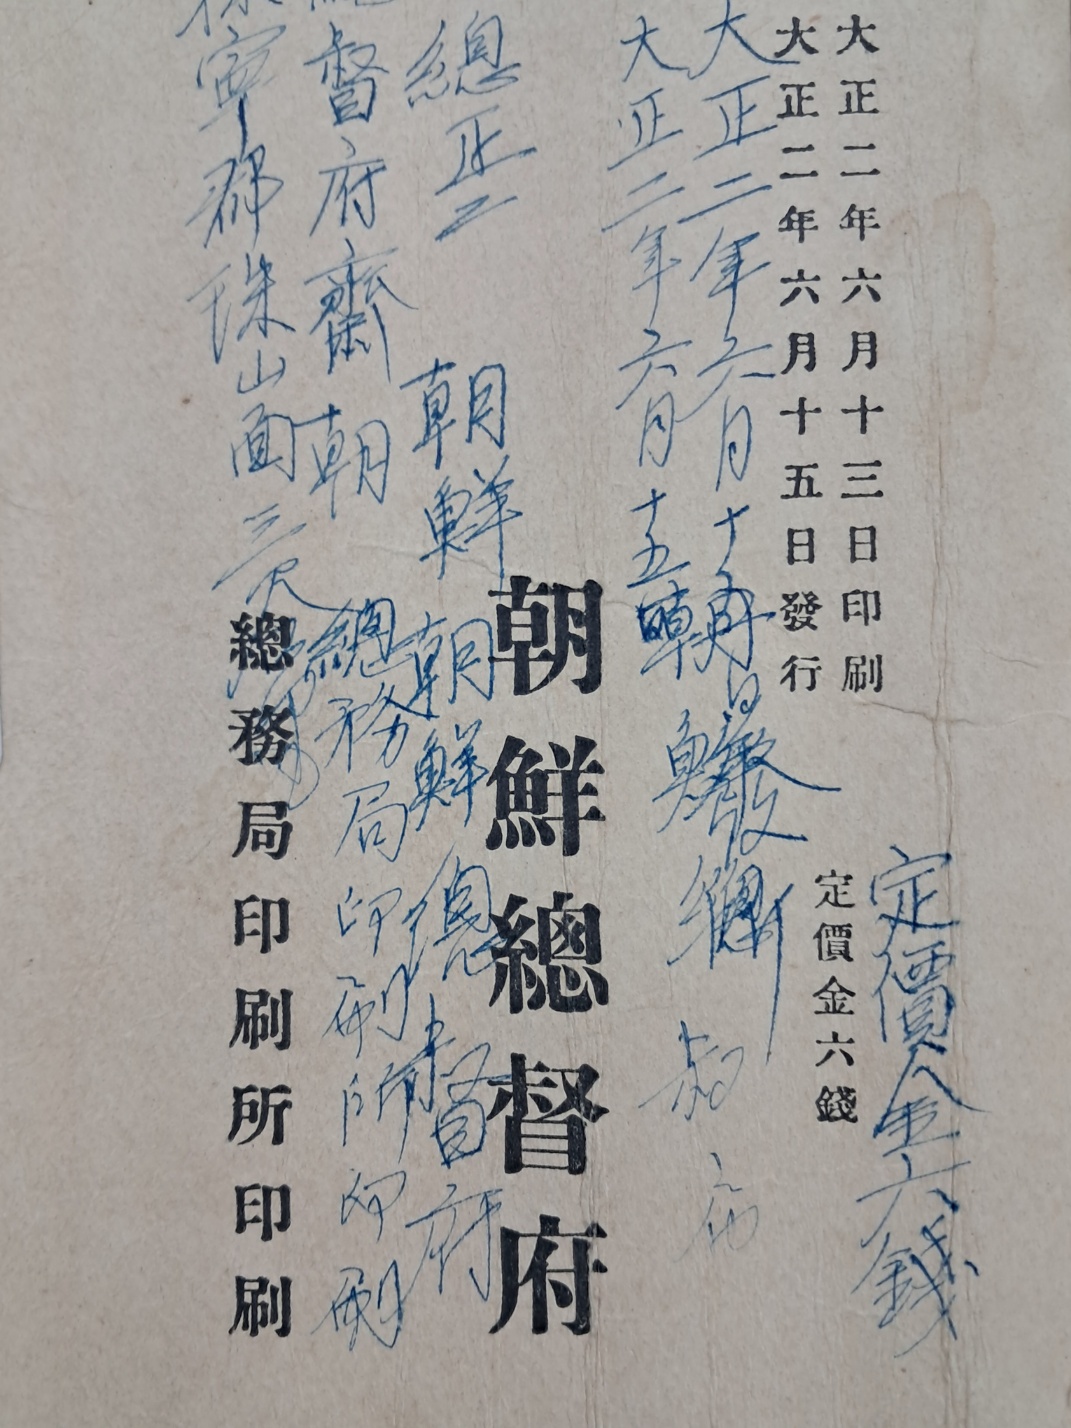 大正二年六月十三日印刷
大正二年六月十五日發行
定價金六錢
定價金六錢
大正二年六月十五日發
大正二年六月十五
朝鮮總督府
總正二
朝鮮
朝鮮總督府
督府齋
朝
總務局印刷所印刷
郡珠山面三
總務局印刷所印刷